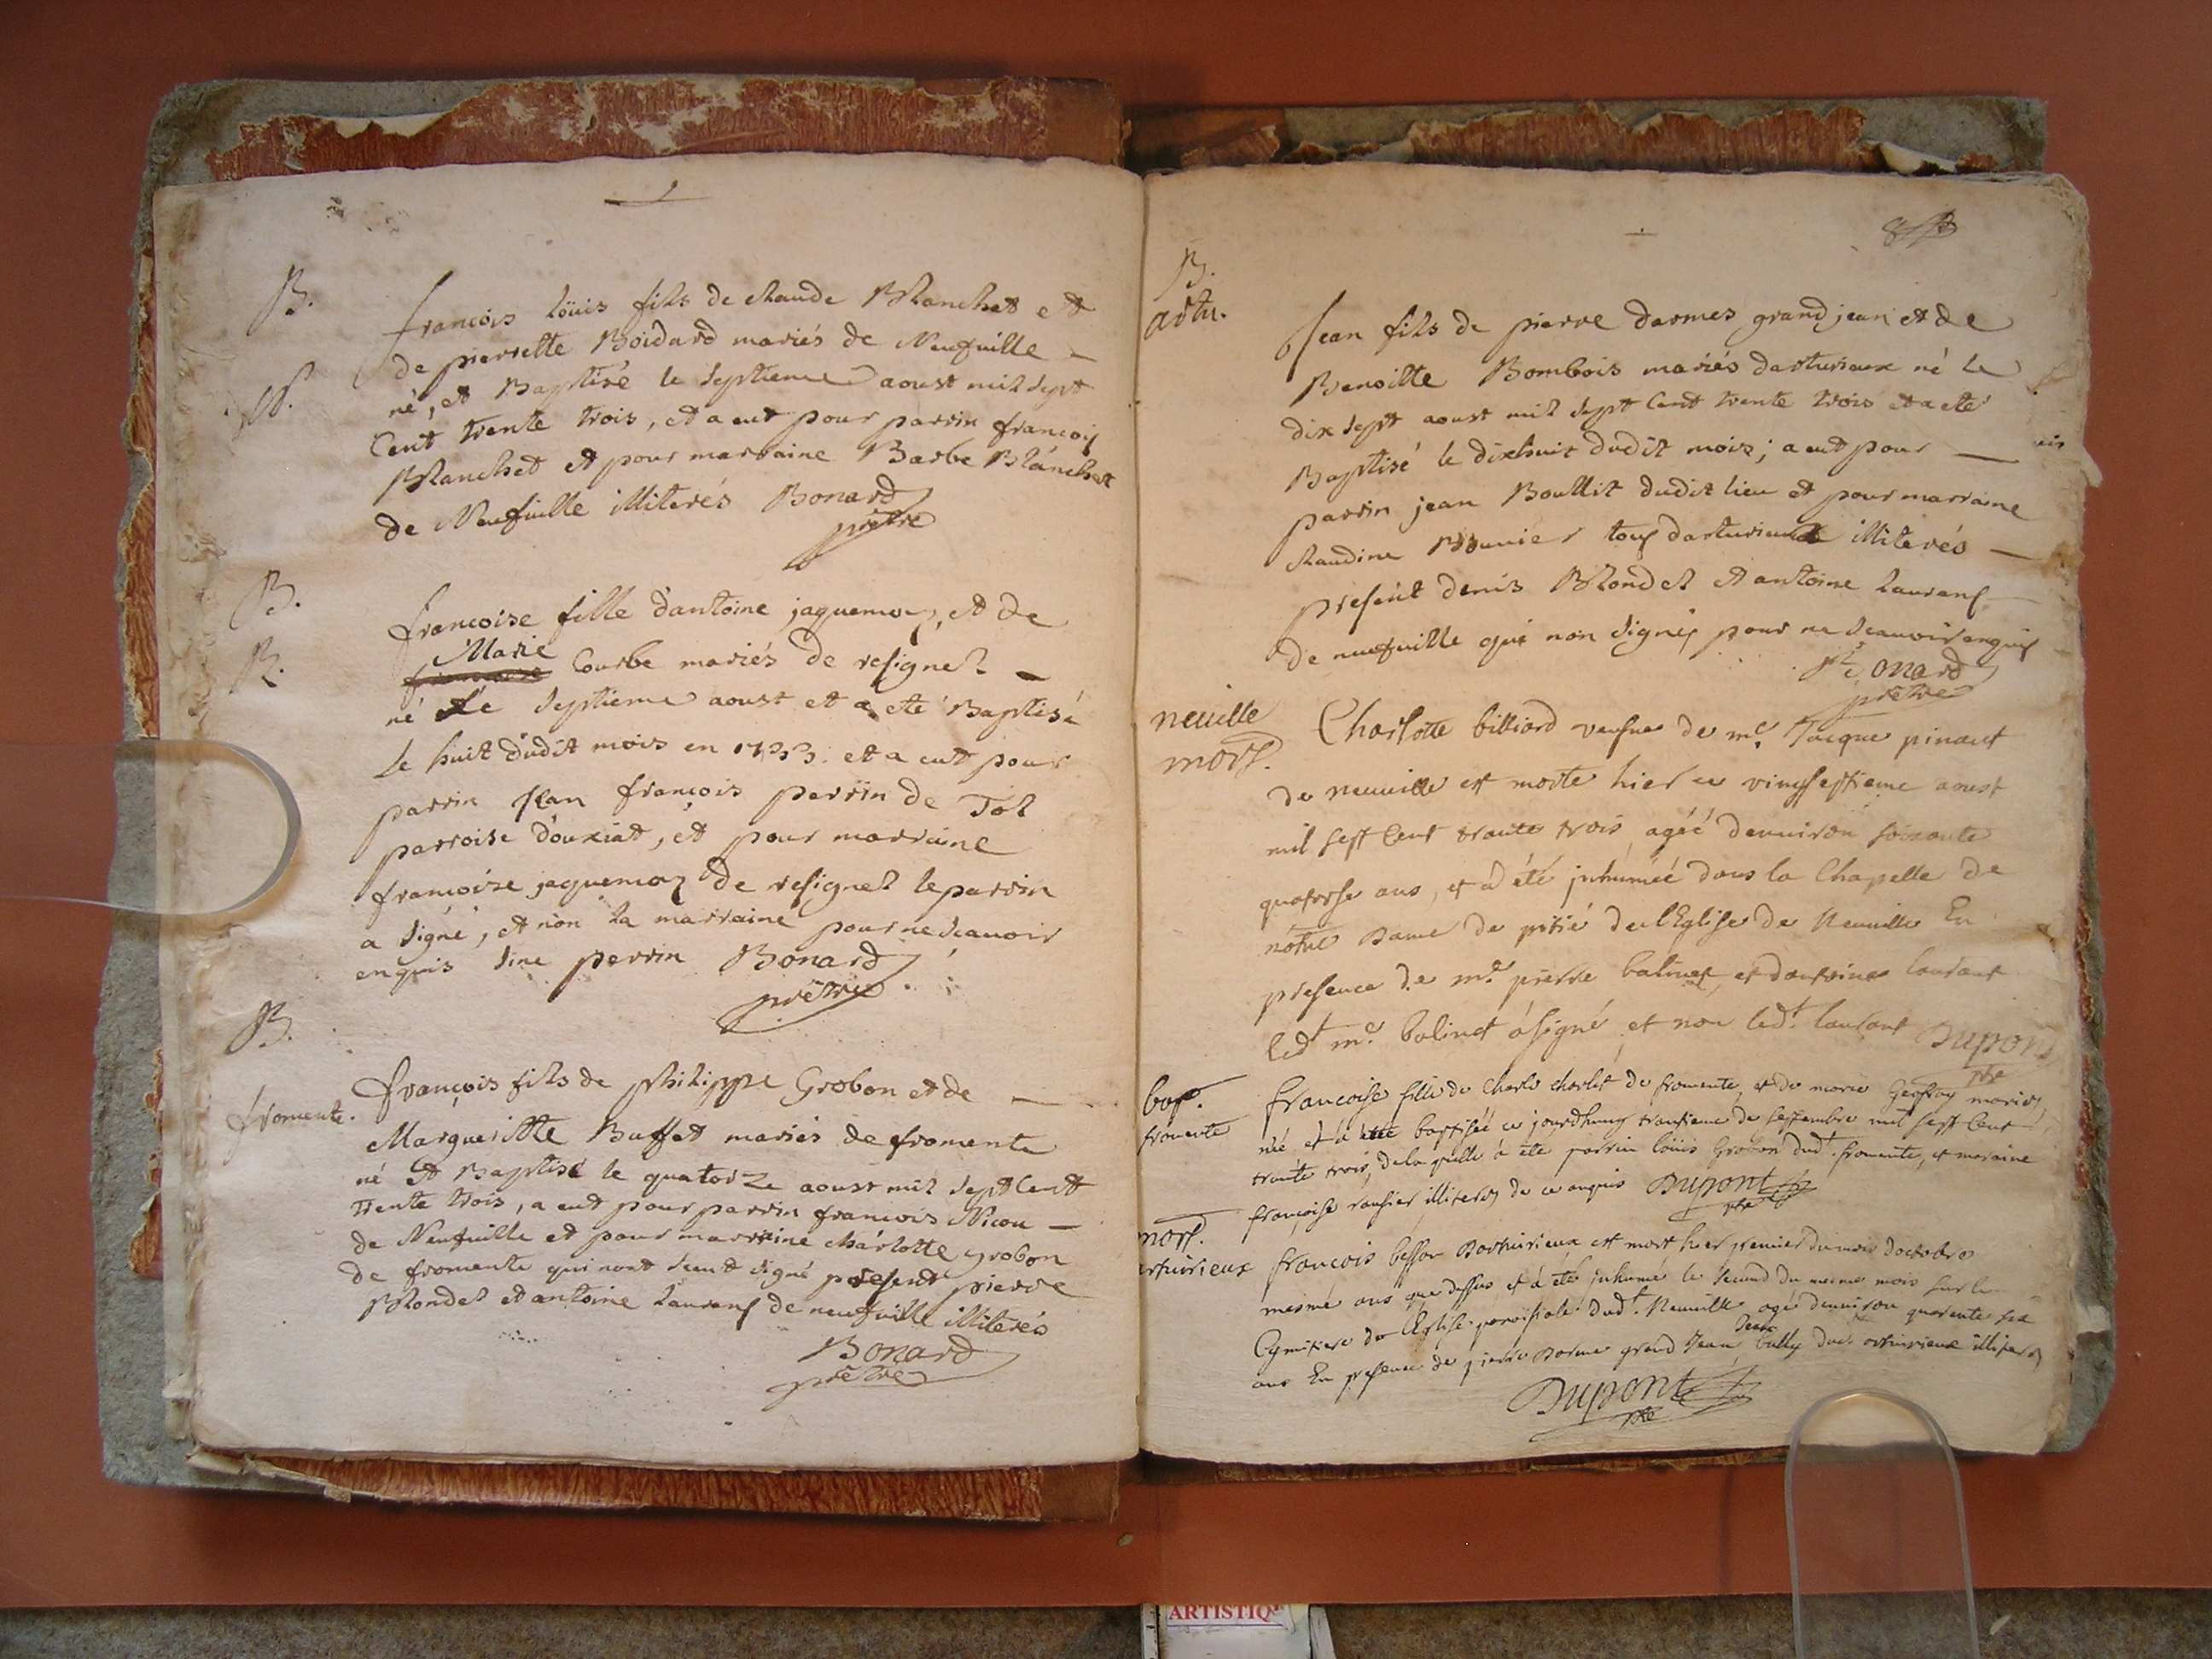 B.
françois loüis fils de claude Blanchet et
de pierrette Boidard mariés de Neufuille
N.
né, et Baptisé le Septieme aoust mil Sept
Cent trente trois, et a eut pour parrin françois
Blanchet et pour marraine Barbe Blanchet
de Neufuille illiterés Bonard
prêtre
B.
R.
françoise fille d'antoine jaquemoz, et de
Marie
Courbe mariés de resignel
né Le Septieme aoust et a eté Baptisé
le huit dudit mois en 1733. et a eut pour
parrin Jean françois perrin de Tol
parroise d'ouxiat, et pour marraine
françoise jaquemoz de resignel le parrin
a Signé, et non la marraine pour ne Scauoir
enquis Sine perrin Bonard
prêtre
B.
fromente.
françois fils de philippe Grobon et de
Margueritte Buffet mariés de fromente
né et Baptisé le quatorze aoust mil Sept Cent
trente trois, a eut pour parrin françois Nicou
de Neufuille et pour marraine charlotte grobon
de fromente qui nont Seut Signé present pierre
Blondel et antoine Laurens de neufuille illiterés
Bonard
prêtre
8
B.
artu.
Jean fils de pierre darmes grand jean et de
Benoitte Bombois mariés darturieux né le
dix Sept aoust mil Sept Cent trente trois et a eté
Baptisé le dixhuit dudit mois; a eut pour
parrin jean Boullit dudit lieu et pour marraine
claudine Bouuier tous darturieux illiterés
present denis Blondel et antoine Laurens
de neufuille qui non Signés pour ne Scauoir enquis
Bonard
prêtre
neuille
mort.
Charlotte billiard veufue de me. Jacque pinaut
de neuuille est morte hier ce vingtseptieme aoust
mil sept Cent trante trois agéé denuiron soixante
quatorse ans, et à été juhuméé dans la Chapelle de
nôtre Dame de pitié de l'Eglise de Neuuille En
presence de me. pierre balinet, et dantoine laurant
ledt me. balinet à signé et non ledt. laurant Dupont
ptre
bap.
fromente
françoise fille de Charle charlet de fromente, et de marie Geofray mariés
née et à été baptiséé ce jourdhuuy de septembre mil sept Cent
trante trois, de laquelle à été parrin loüis Grobon dudt. fromente, et maraine
françoise illiterés de ce enquis Dupont
ptre
mort.
arturieux
françois besson Darturieux est mort hier premier du mois doctobre
mesme ans que dessus et à été juhumé le second du mesme mois sur le
Cymitiere de l'Eglise paroissiale dudt. Neuuille agé denuiron quarente six
Jean
ans En presence de pierre Darme grand Jean bully dudt arturieux illiterés
Dupont
ptre
ARTISTIQ